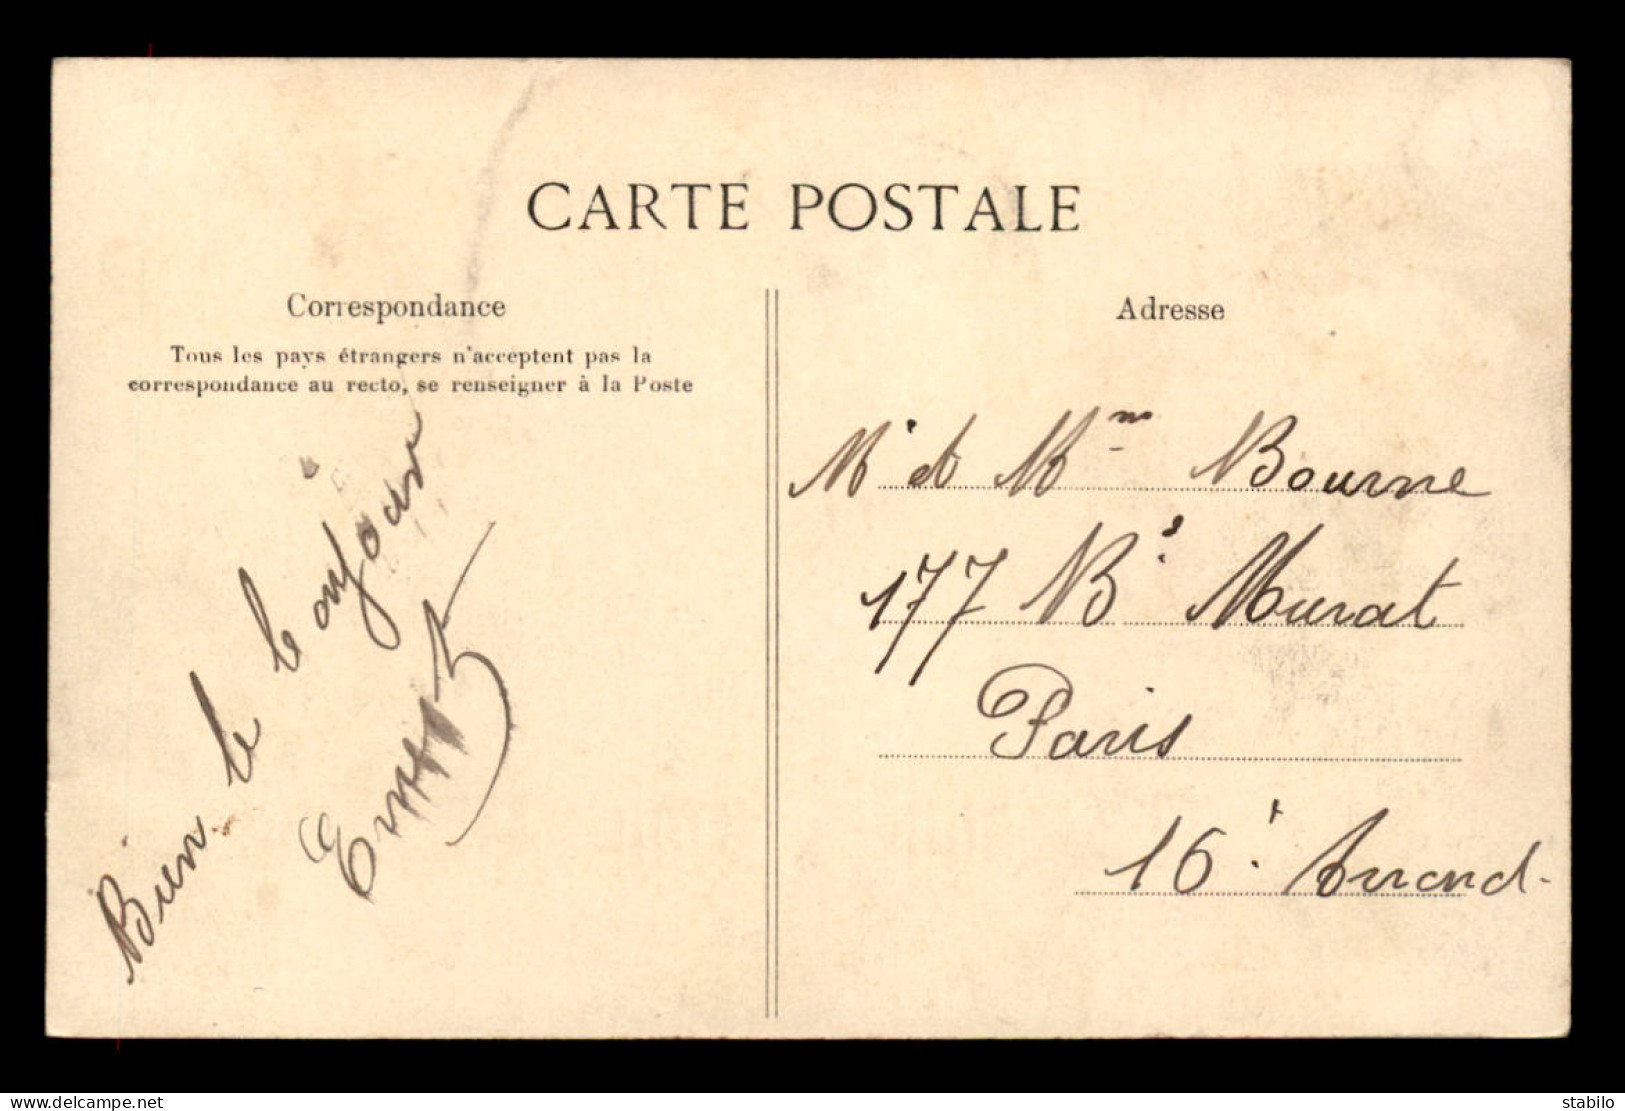 CARTE POSTALE
Correspondance
Tous les pays étrangers n'acceptent pas la
correspondance au recto, se renseigner à la Poste
Bien le
Adresse
Mr et Mme Bourne
177 Bd Murat
Paris
16e Arrond.
www.delcampe.net
stabilo